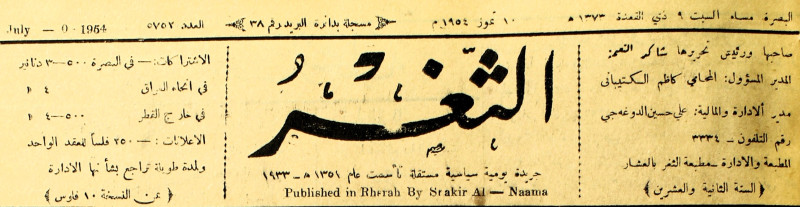 البصرة مساء السبت ٩ ذي القعدة ١٣٧٣ ه
١٠ تموز ١٩٥٤ م
مسجلة بدائرة البريد رقم ٣٨
العدد ٥٧٥٢
July — 0 - 1954
صاحبها ورئيس تحريرها شاكر النعمة
المدير المسؤول: المحامي كاظم الكتيباني
مدير الادارة والمالية: علي حسين الدوغه جي
رقم التلفون — ٣٣٣٤
المطبعة والادارة — مطبعة الثغر بالعشار
﴿السنة الثانية والعشرين﴾
الثغر
جريدة يومية سياسية مستقلة تأسست عام ١٣٥١ ه — ١٩٣٣
Published in Bhsrah By Srakir Al — Naama
الاشتراكات: — في البصرة ٥٠٠—٣ دنانير
في انحاء العراق ٤ »
في خارج القطر ٥٠٠—٤ »
الاعلانات: — ٢٥٠ فلساً للعقد الواحد
ولمدة طويلة تراجع بشأنها الادارة
﴿ثمن النسخة ١٠ فلوس﴾